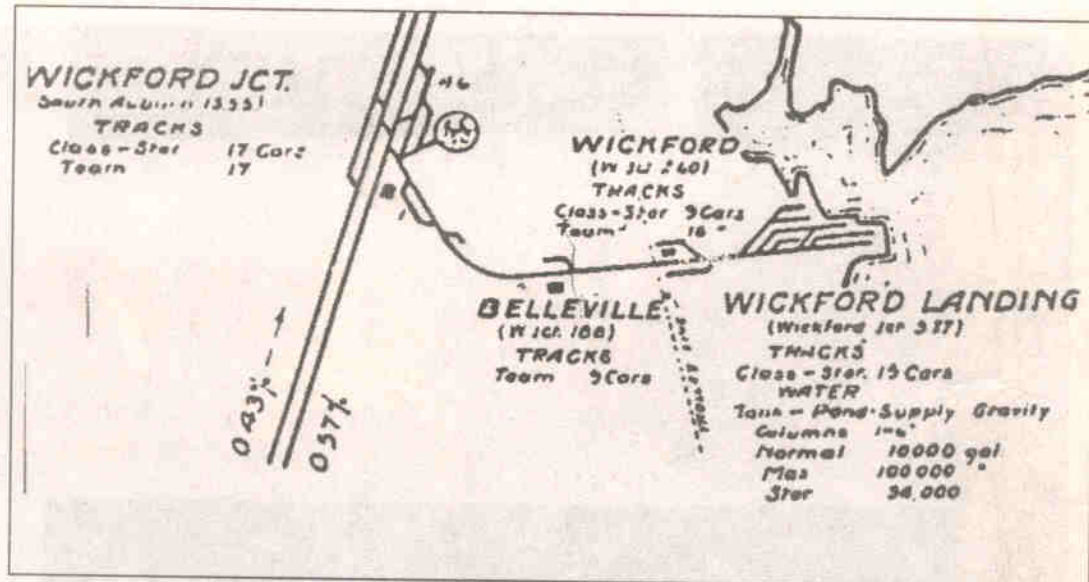 WICKFORD JCT.
South Auburn 13.55
TRACKS
Class-Stor 17 Cars
Team 17
46
WICKFORD
TRACKS
Class-Stor 9 Cars
Team 16 "
BELLEVILLE
(W JCT. 188)
TRACKS
Team 9 Cars
WICKFORD LANDING
(Wickford Jct 3.87)
TRACKS
Class-Stor. 19 Cars
WATER
Tank - Pond-Supply Gravity
Columns 1-6"
Normal 10000 gal.
Max 100000 "
Stor 34,000